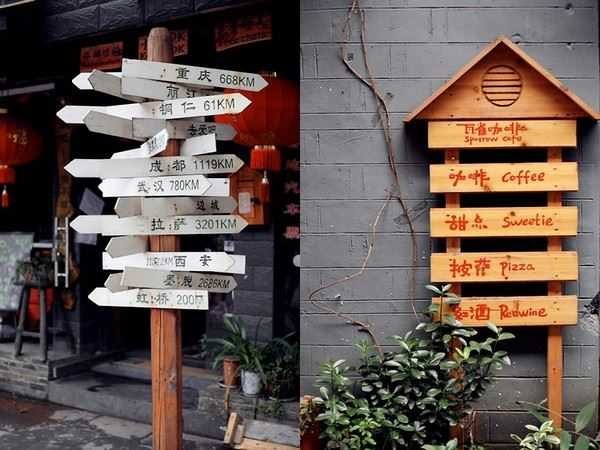 重庆 668KM
丽江
铜仁 61KM
成都 1119KM
武汉 780KM
边城
拉萨 3201KM
西安
墨脱 2686KM
虹桥 200M
瓦雀咖啡
Sparrow cafe
咖啡 Coffee
甜点 Sweetie
披萨 Pizza
红酒 Redwine